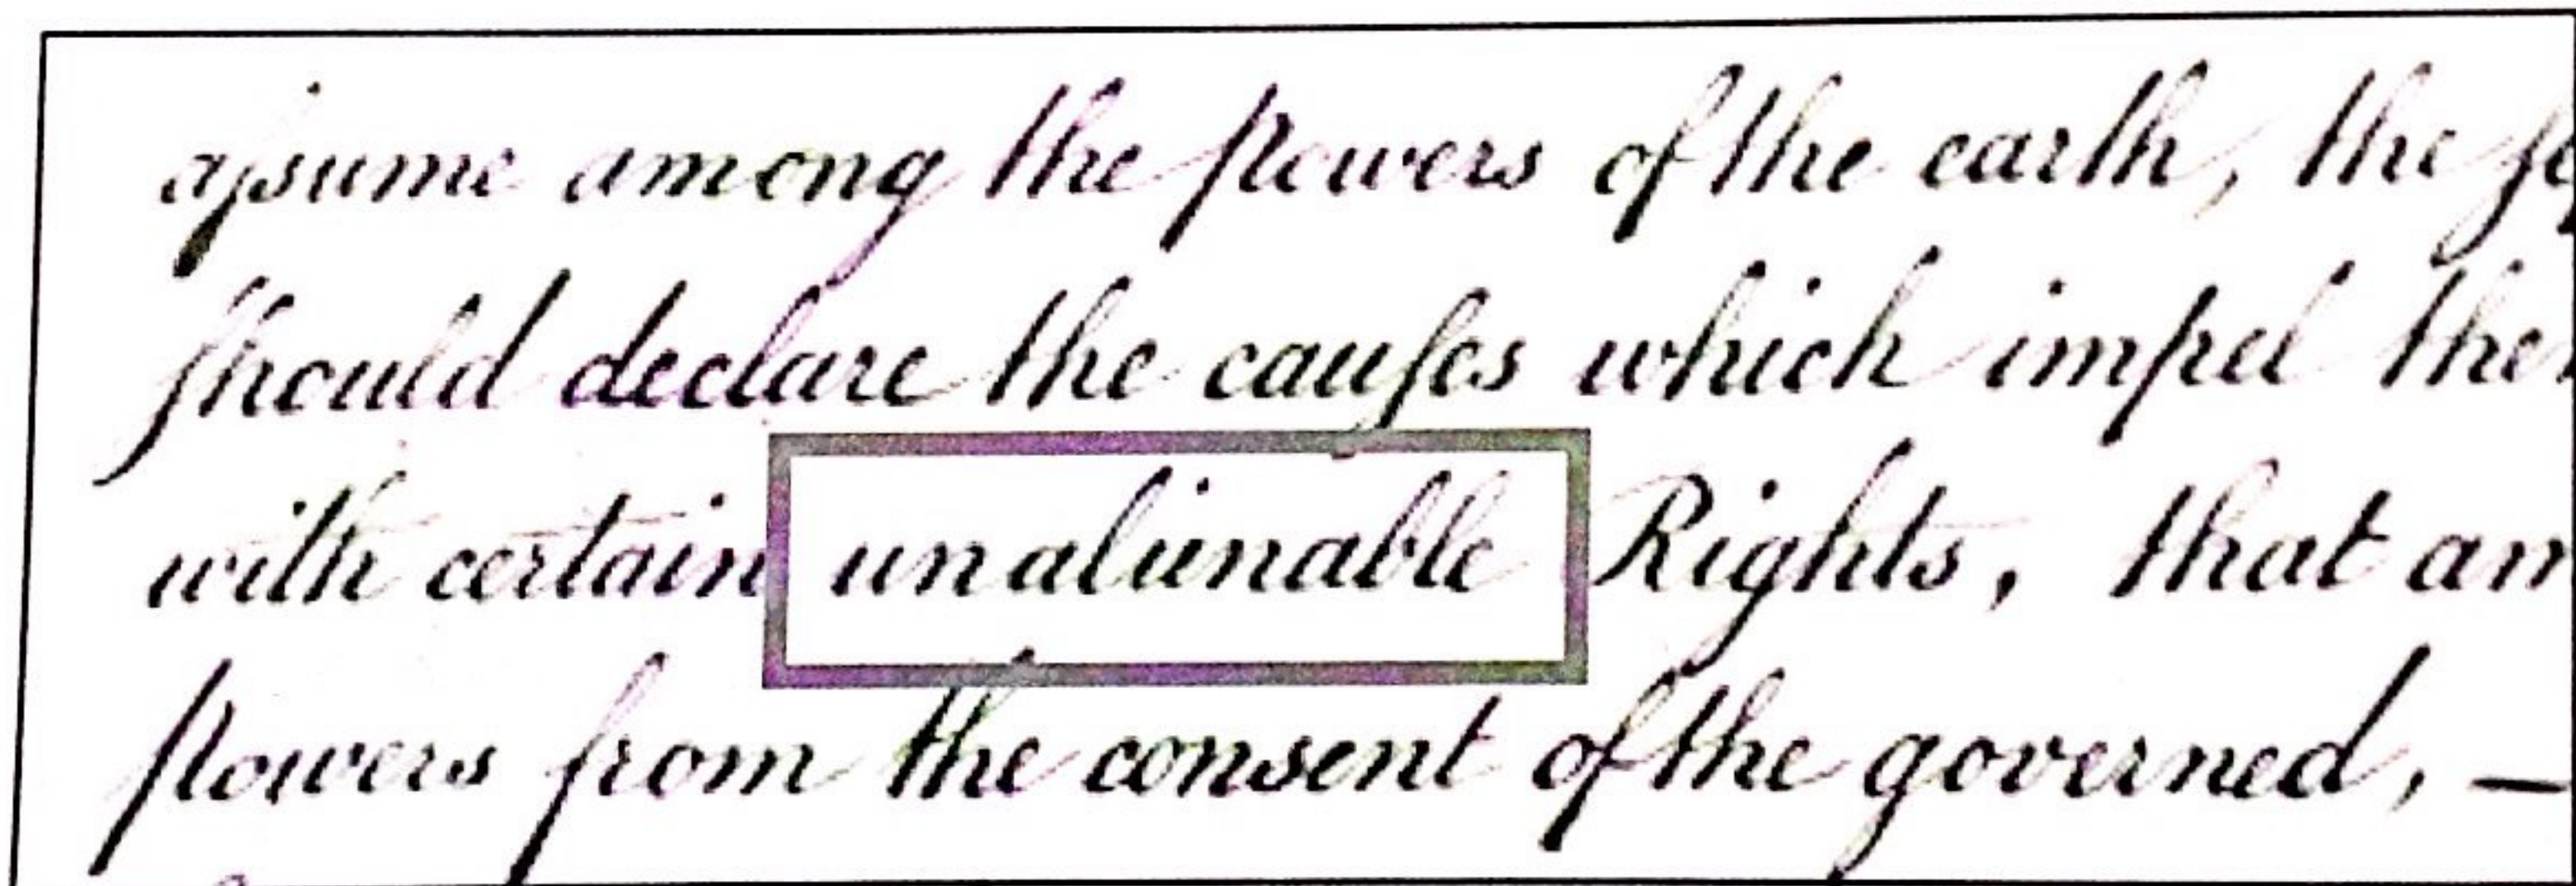 aſsume among the powers of the earth, the
ſhould declare the cauſes which impel the
with certain unalienable Rights, that am
powers from the consent of the governed, —